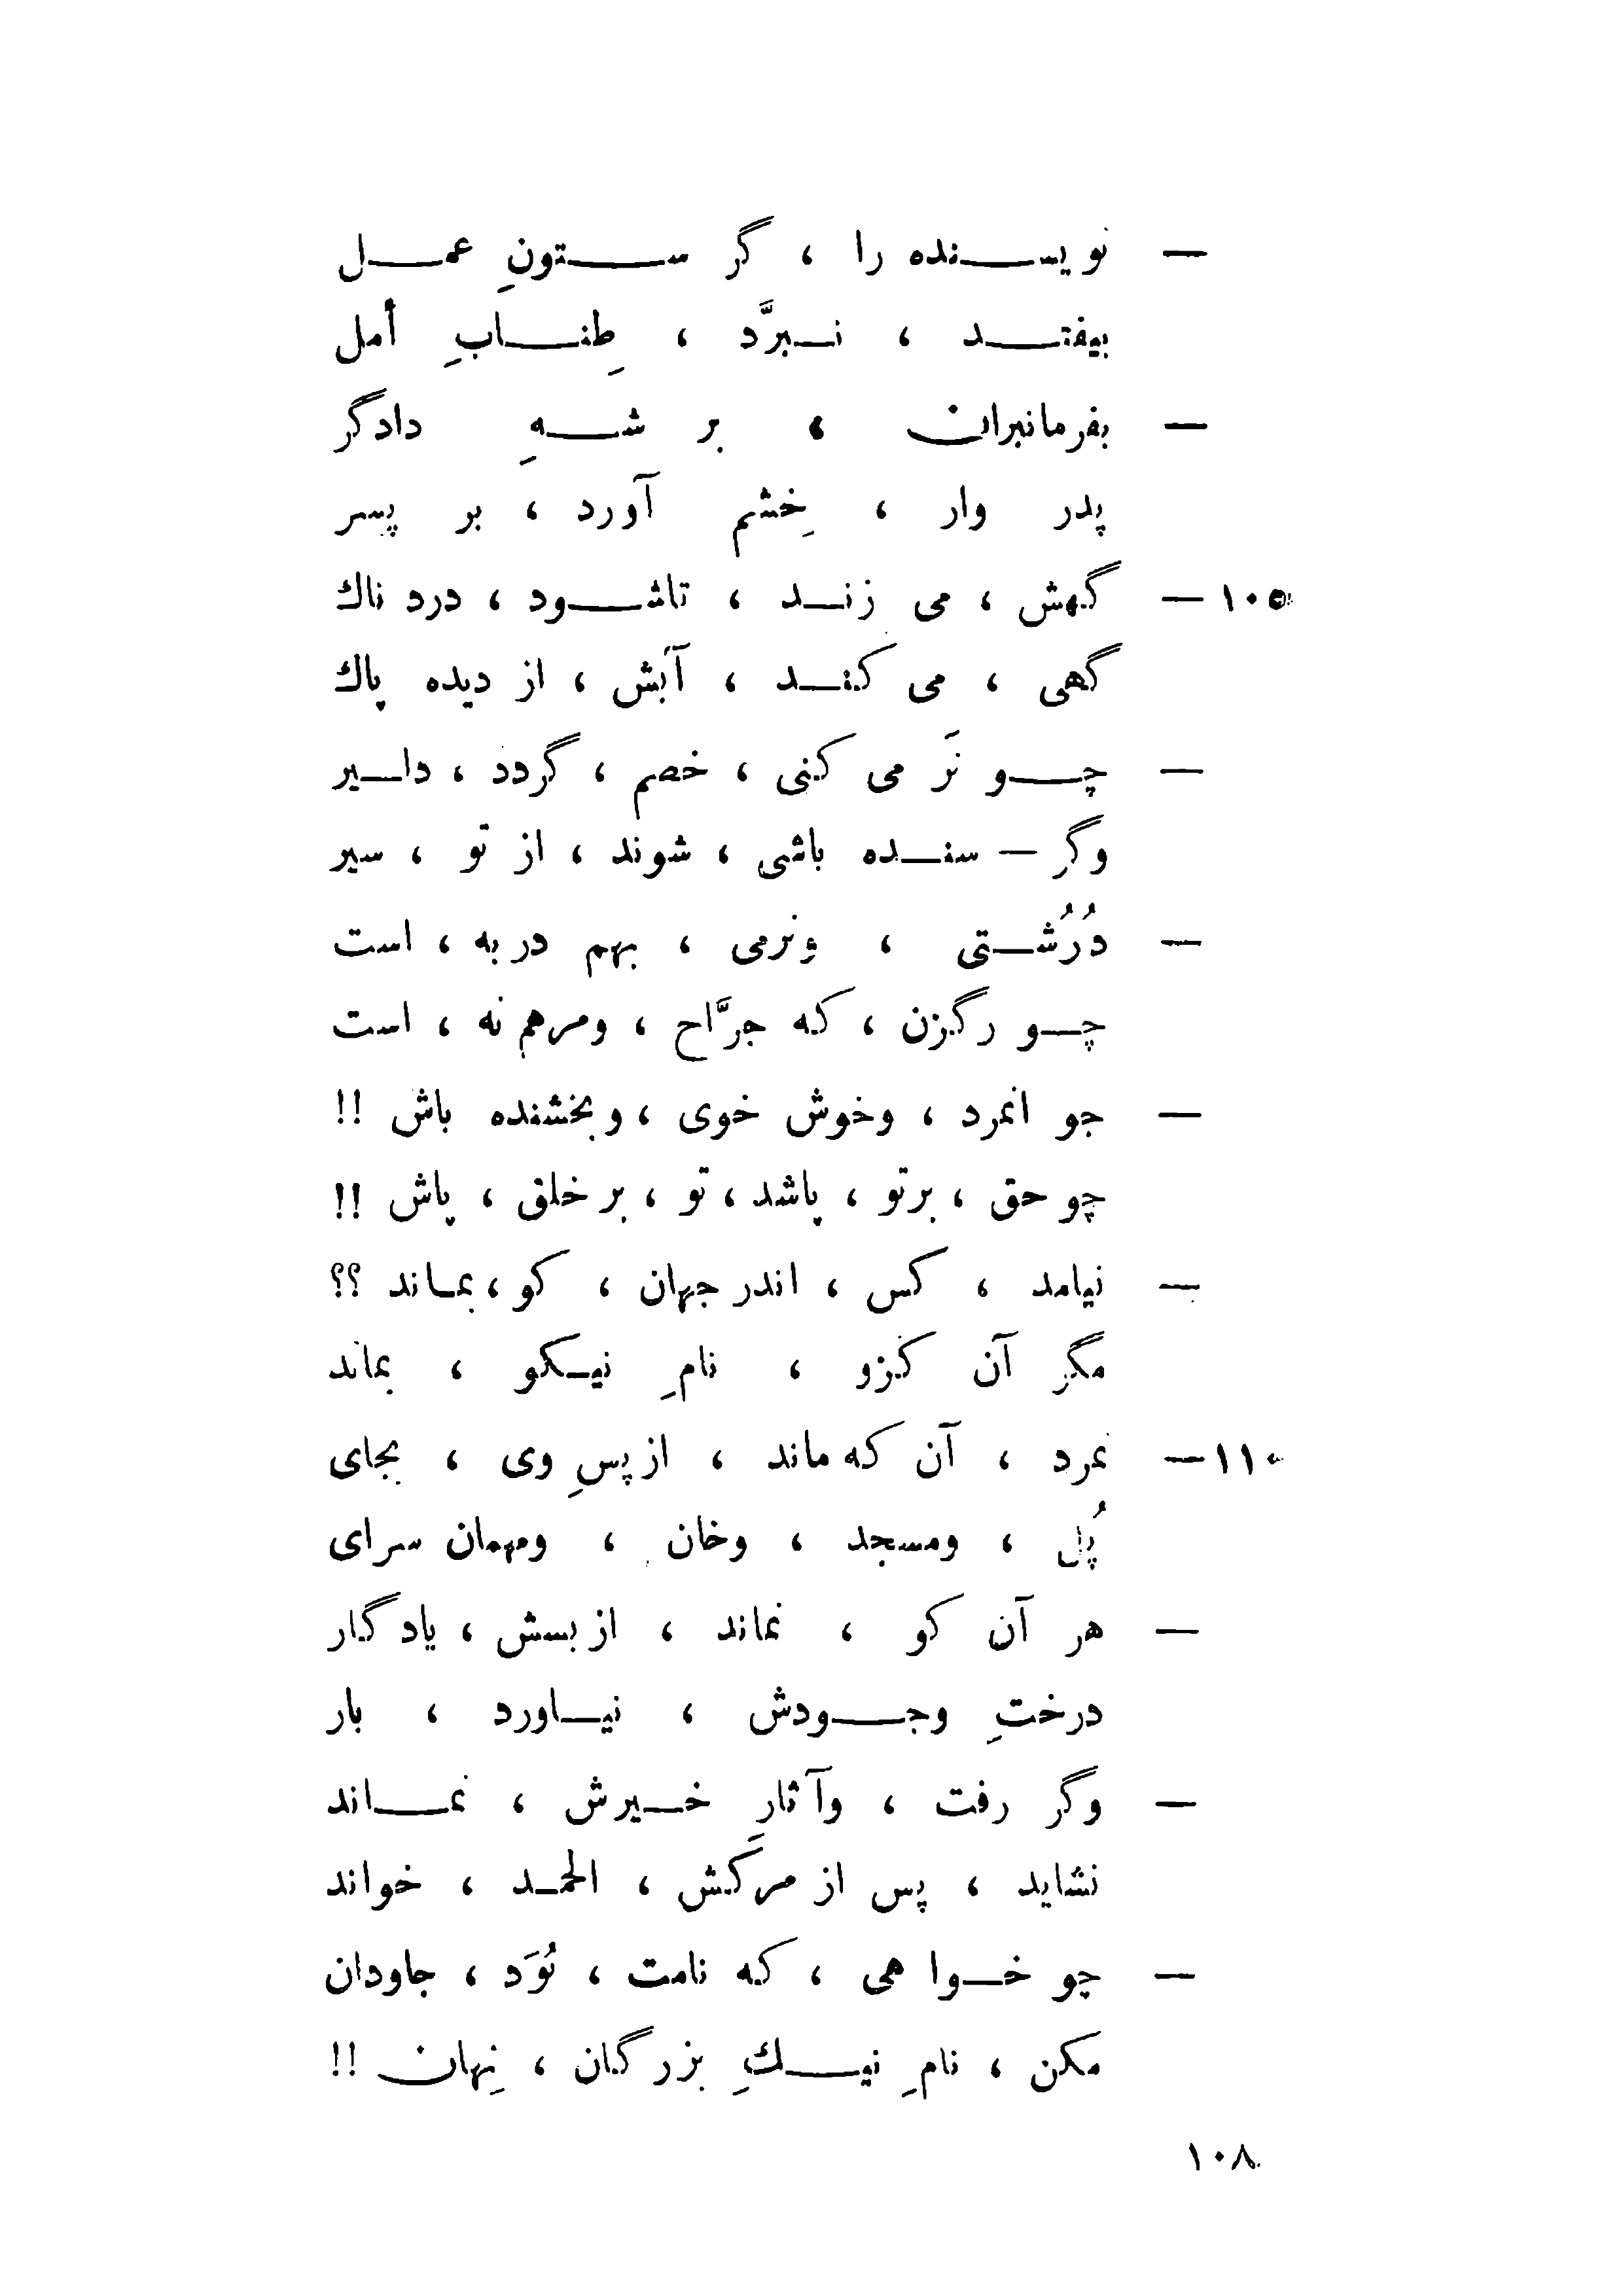 — نويسنده را ، گر ستونِ عمل
بيفتد ، نبرَّد ، طِنابِ أمل
— بفرمانبران ، بر شهِ دادگر
پدر وار ، خِشم آورد ، بر پسر
١٠٥ — گهش ، مى زند ، تاشود ، درد ناك
گهى ، مى كند ، آبش ، از ديده پاك
— چو نَر مى كنى ، خصم ، گردد ، دلير
وگر — سنده باشى ، شوند ، از تو ، سير
— دُرُشتى ، ونرمى ، بهم در به ، است
چو رگزن ، كه جرَّاح ، ومرهم نه ، است
— جو انمرد ، وخوش خوى ، وبخشنده باش !!
چو حق ، برتو ، پاشد ، تو ، بر خلق ، پاش !!
— نيامد ، كس ، اندر جهان ، كو ، بماند ؟؟
مگر آن كزو ، نامِ نيكو ، بماند
١١٠ — نمرد ، آن كه ماند ، از پسِ وى ، بجاى
پُل ، ومسجد ، وخان ، ومهمان سراى
— هر آن كو ، نماند ، از بسش ، يادگار
درختِ وجودش ، نياورد ، بار
— وگر رفت ، وآثارِ خيرش ، نماند
نشايد ، پس از مرگش ، الحمد ، خواند
— چو خواهى ، كه نامت ، بُوَد ، جاودان
مكن ، نامِ نيكِ بزرگان ، نِهان !!
١٠٨